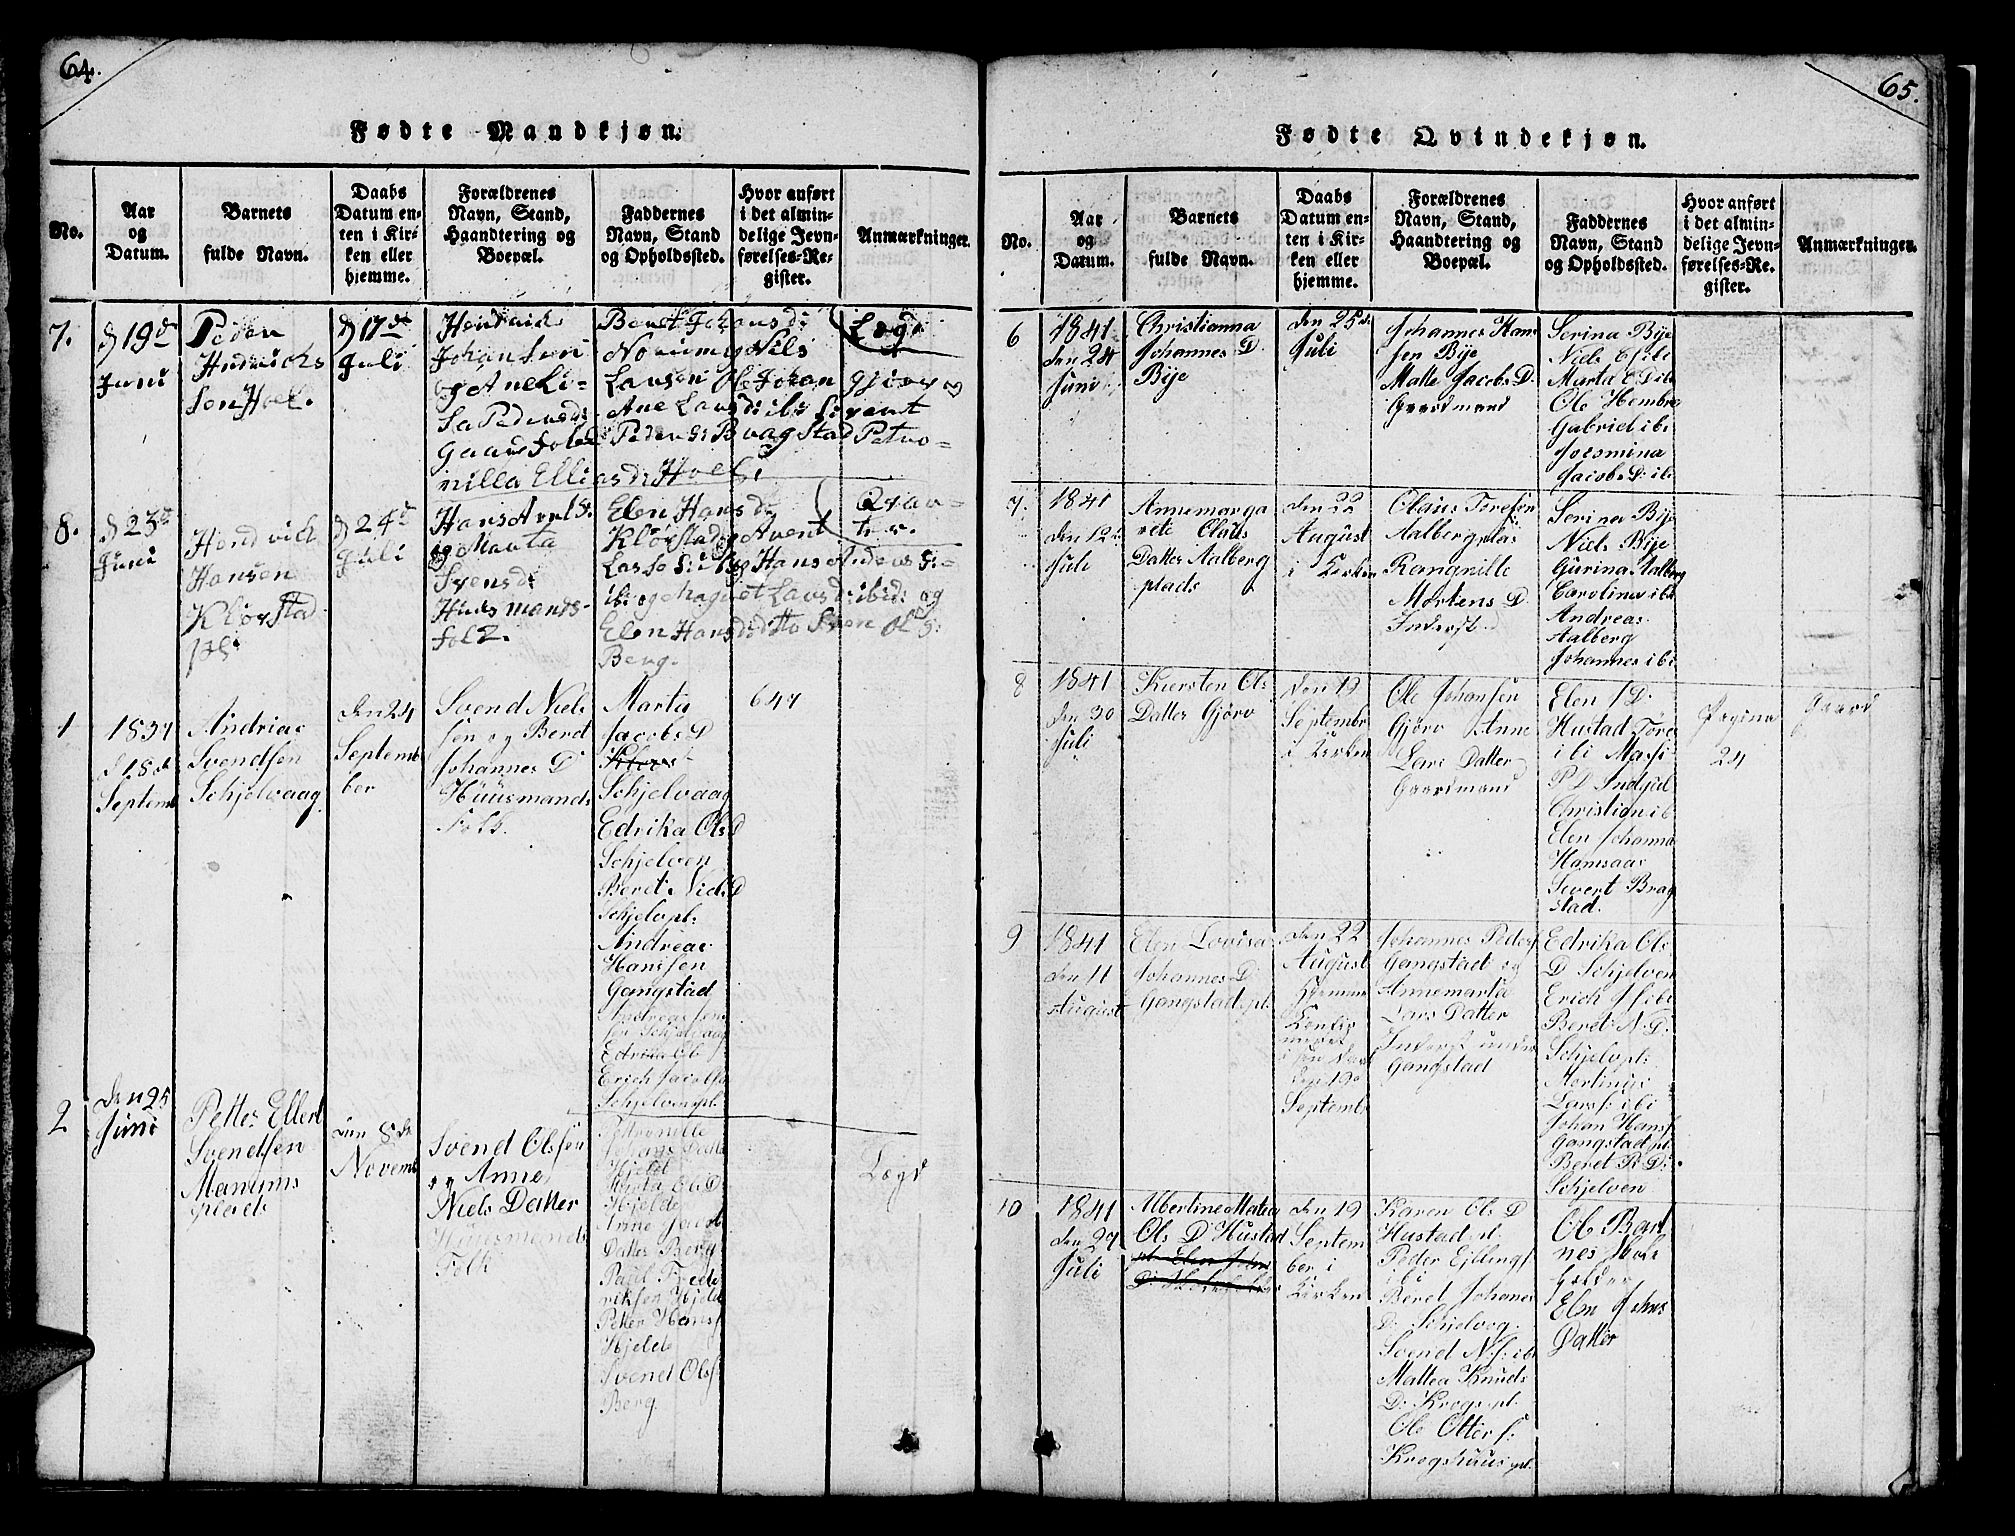 64.
Fødte Mandkjøn.
No.
Aar
og
Datum.
Barnets
fulde Navn.
Daabs
Datum en-
ten i Kir-
ken eller
hjemme.
Forældrenes
Navn, Stand,
Haandtering og
Boepæl.
Faddernes
Navn, Stand
og Opholdssted.
Hvor anført
i det almin-
delige Jevn-
førelses-Re-
gister.
Anmærkninger.
7.
d 19d
Juni
Peder
Hndrichs
Søn Hoel.
d 17d
Juli
Hendrich
Johan Søn
og Ane Li-
sa Peders d:
Gaard folk
Beret Johans d:
Norum og Nils
Larsen Ole Johan
Ane Lars d: ibi Sivert
Peder S: Bragstad Petro-
nilla Ellias d: Hoel.
Lægd
8.
d 23d
Juni
Hendrich
Hansen
Klørstad
pl:
d 24d
Juli
Hans Arel S:
og Marta
Svens d:
Huusmands-
folk.
Elen Hans d:
Klørstad og Arent
Lasse S: ib: og Hans Anders S:
ibi: og Magret Lars d: ibid: og
Elen Hans d: ditto Sven Ol S:
Berg.
1
1837
d 18de
Septemb
Andrias
Svendsen
Schjelvaag
den 24
Septemb
ber
Svend Niels
sen og Beret
Johannes D
Hüüsmands
Folk.
Marta
Jacobs D
Schjelvaag
Edrika Ols D
Schjelven
Beret Niels D
Schjelvpl:
Andreas
Hanssen
Gangstad
Edrika Ol
Erich Jacobsen
Schjelvenpl.
647
2
den 25
Juni
Petter Ellert
Svendsen
Manums
plads
den 8de
Novemb
Svend Olsen
og Anne
Niels Datter
Hüüsmands
Folk
Petronille
Johans Datter
Hjelde
Marta Ols D
Hjelde
Anne Jacob
Datter Berg
Paul Frede
riksen Hjelde
Petter Hans
Hjelde
Svend Ols
Berg.
Lægd
65.
Fødte Qvindekjøn.
No.
Aar
og
Datum.
Barnets
fulde Navn.
Daabs
Datum en-
ten i Kir-
ken eller
hjemme.
Forældrenes
Navn, Stand,
Haandtering og
Boepæl.
Faddernes
Navn, Stand
og Opholdssted.
Hvor anført
i det almin-
delige Jevn-
førelses-Re-
gister.
Anmærkninger.
6
1841
den 24
Juni
Christianna
Johannes D.
Bije
den 25de
Juli
Johannes Han
sen Bije
Matte Jacobs D.
Gaardmand
Serina Bije
Niels E ibi
Marta E D ibi
Ole Hembre
Gabriel ibi
Joesmina
Jacobs D: ibi
7.
1841
den 12te
Juli
Annemarga
rete Olaüs
Datter Aalberg
plads
den 22
August
i Kirken
Olaus Toresen
Aalbergplas
Rangnille
Mortens D.
Inderst
Serina Bije
Niels Bije
Gurina Aalberg
Carolina ibi
Andreas
Aalberg
Johannes ibi
8
1841
den 30
Juli
Kiersten Ols
Datter Gjörv
den 19
Septembr
i Kirken
Ole Johansen
Gjörv Anne
Lars Datter
Gaardmand
Elen J D:
Hustad Tore
ibi Massi
P D Indgül
Christian ibi
Elen Johanna
Hamsaas
Severt Brag
stad.
Pagina
24
Gaard
9
1841
den 11
August
Elen Lovisa
Johannes D:
Gangstad pl:
den 22
August
Hjemme
den 19
Septembr
Johannes Peders
Gangstad og
Annemarta
Lars Datter
Inderst under
Gangstad
Edrika Ols
D Schjelven
Erich J ibi
Beret N. D:
Schjelvpl:
Mortinus
Larss: ibi
Johan Hanss
Gangstad pl.
Beret R D:
Schjelven
10
1841
den 27
Juli
Albertine Matea
Ols D Hustad
den 19
Septem
ber i
Kirken
Karen Ols D
Hustad pl.
Peder Ejlings
ibi
Beret Johanes
D: Schjelvog.
Svend N: ibi
Mattea Knuds
D: Krogs pl.
Ole Otters:
Krogshuus pl.
Ole Bart
nes Skole
holder
Elen Johns
Datter